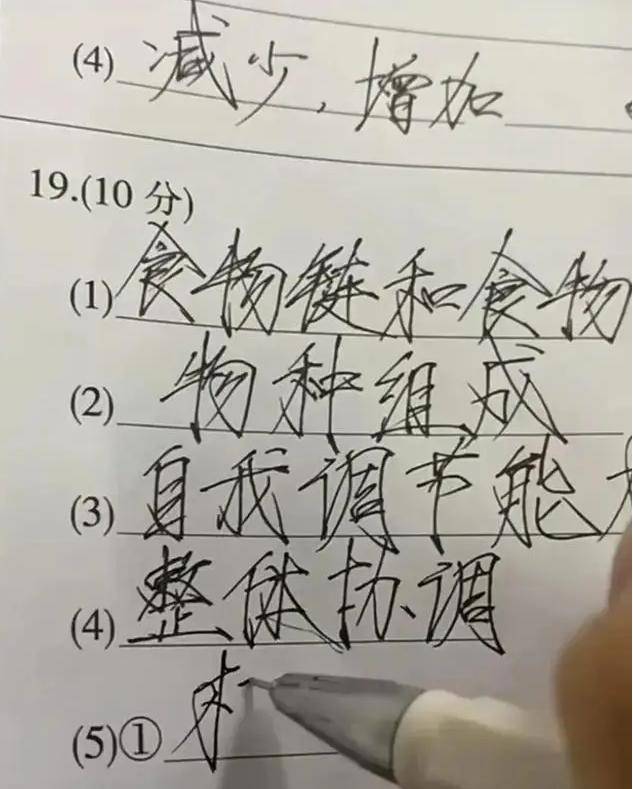 (4) 减少,增加
19.(10 分)
(1) 食物链和食物
(2) 物种组成
(3) 自我调节能
(4) 整体协调
(5)①